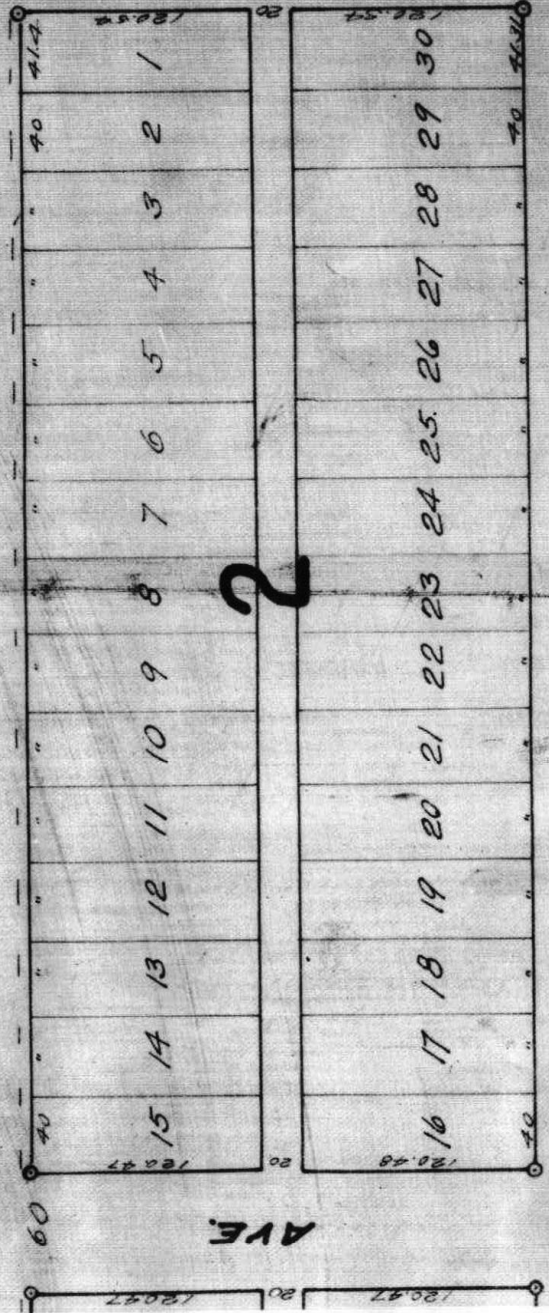 120.54 20 120.54
41.4 1 30 41.31
40 2 29 40
" 3 28 "
" 4 27 "
" 5 26 "
" 6 25. "
" 7 24 "
" 8 2 23 "
" 9 22 "
" 10 21 "
" 11 20 "
" 12 19 "
" 13 18 "
" 14 17 "
40 15 16 40
120.47 20 120.48
60 AVE.
120.47 20 120.47